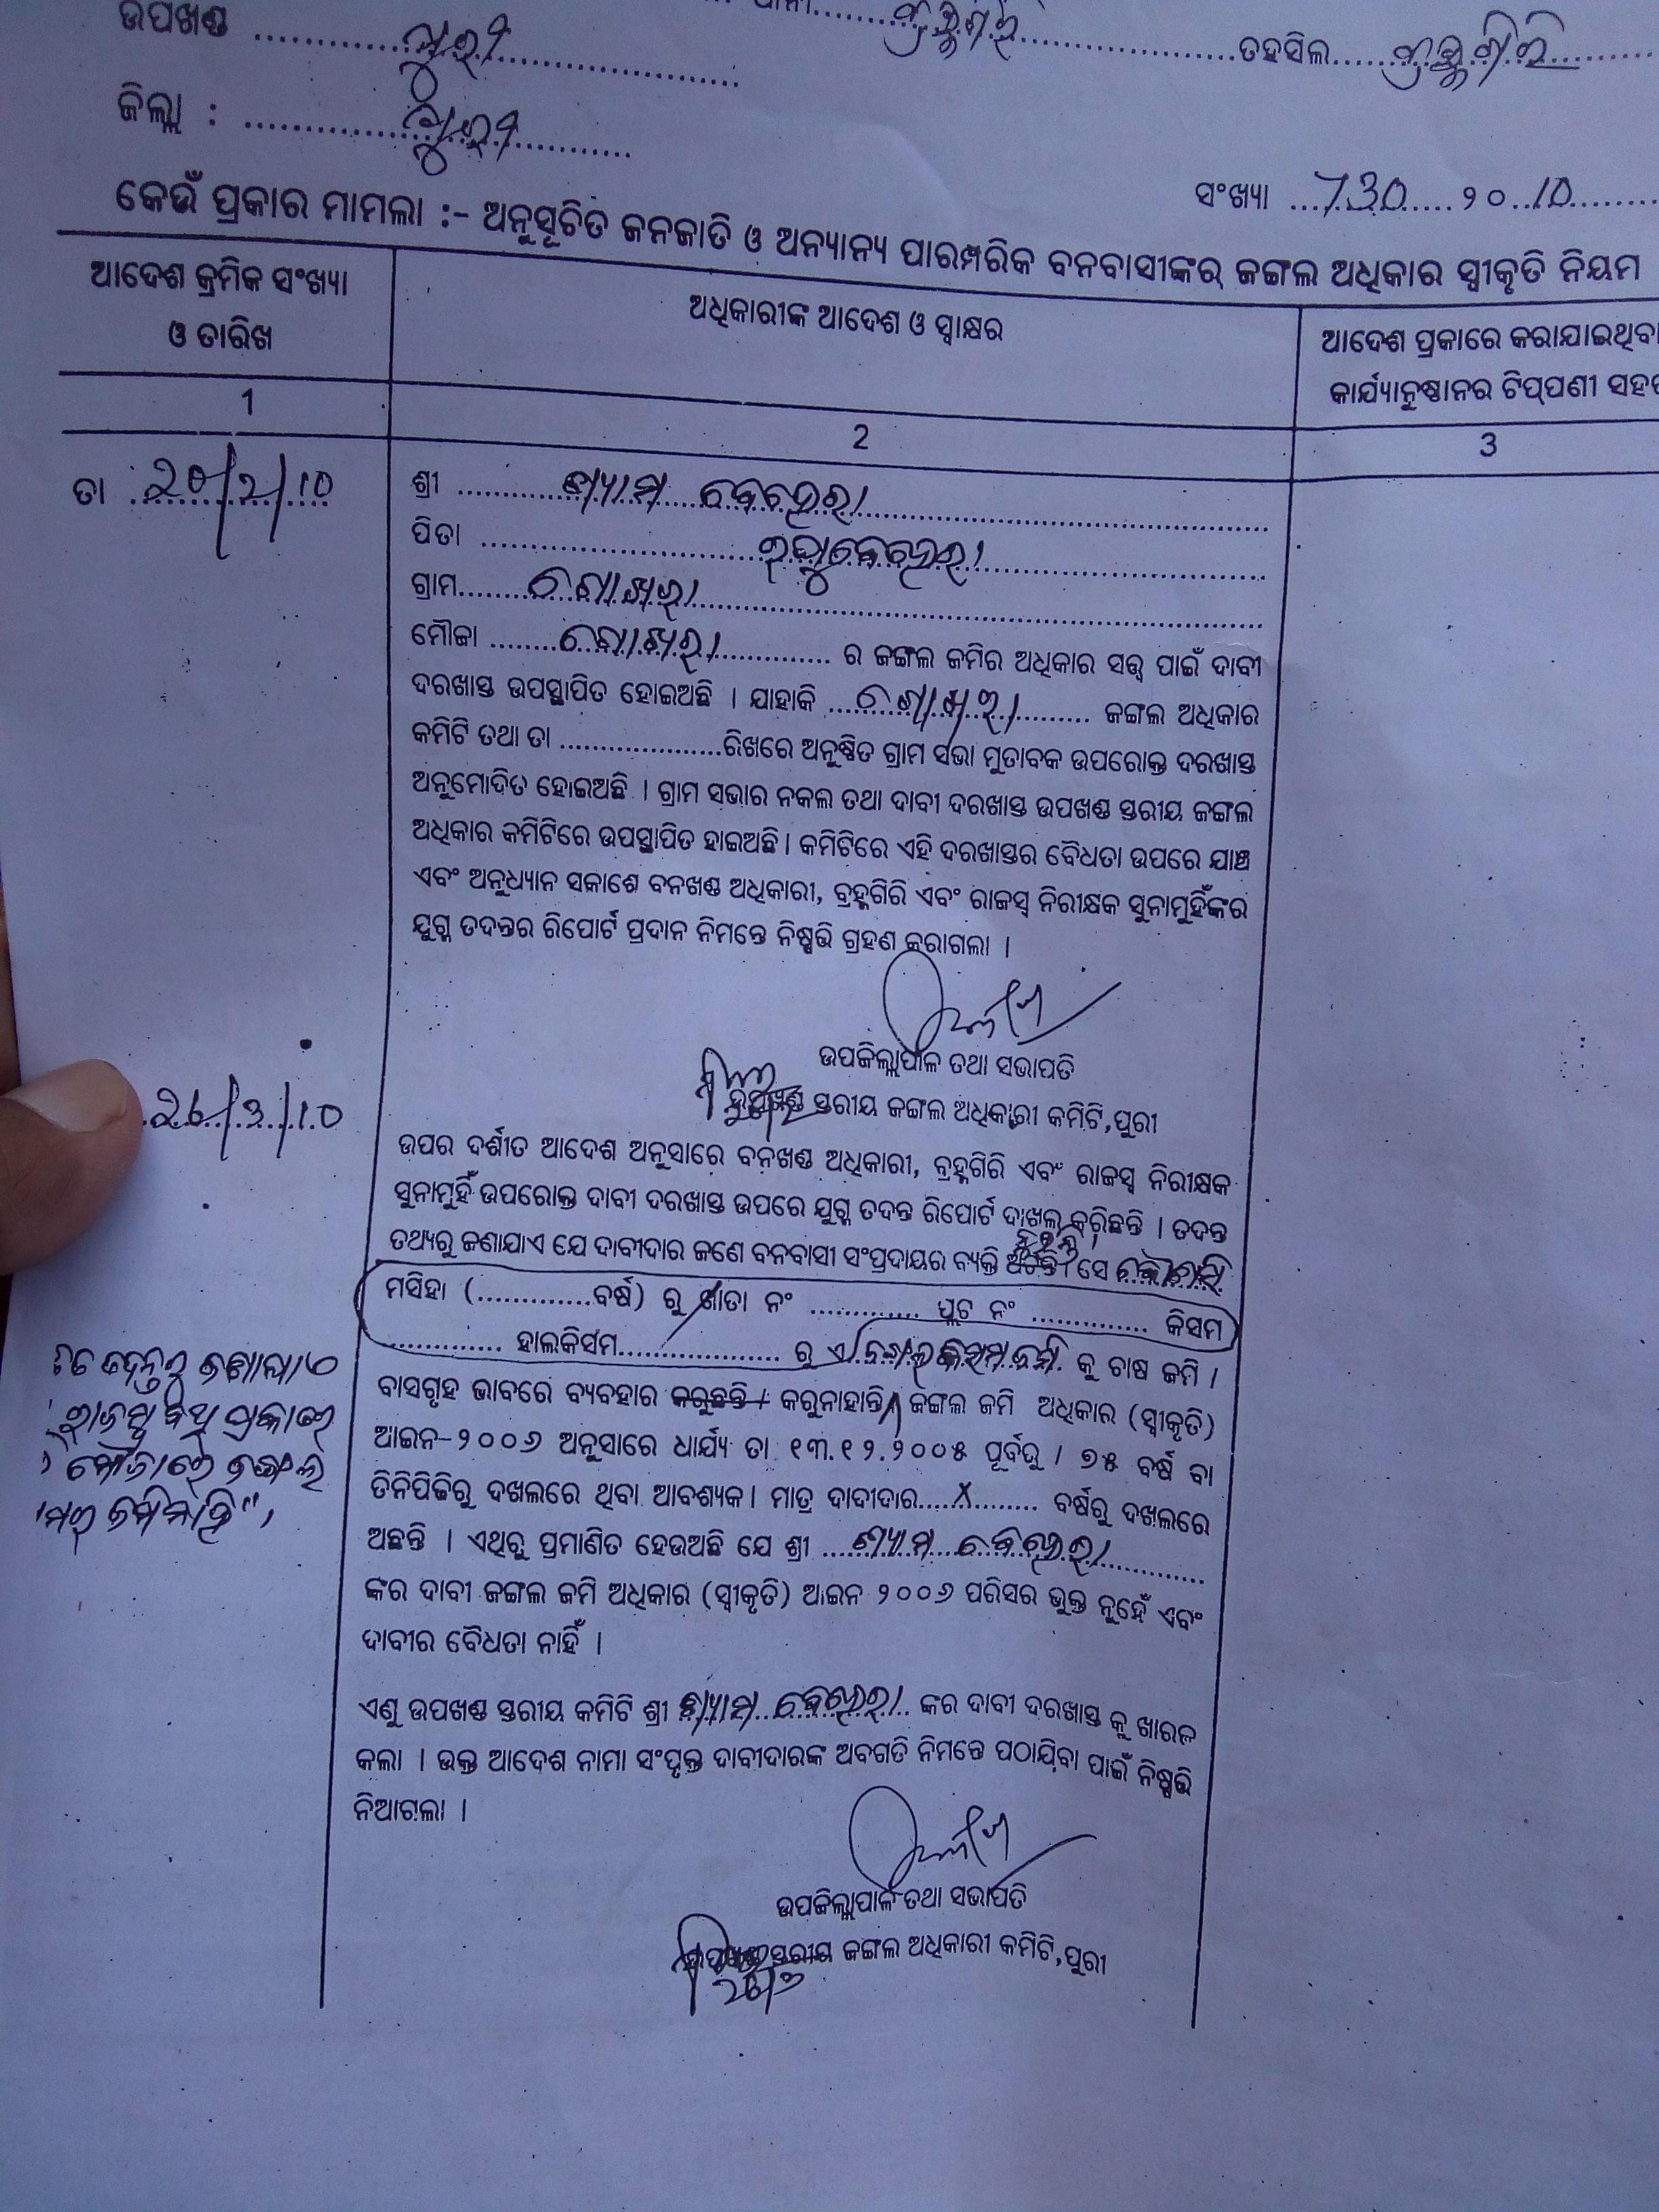 ଉପଖଣ୍ଡ .................. ପୁରୀ ..................
ତହସିଲ .................. ବ୍ରହ୍ମଗିରି
ଜିଲ୍ଲା : .................. ପୁରୀ ..................
ସଂଖ୍ୟା ... 730 ..... ୨୦.. 10 .........
କେଉଁ ପ୍ରକାର ମାମଲା :- ଅନୁସୂଚିତ ଜନଜାତି ଓ ଅନ୍ୟାନ୍ୟ ପାରମ୍ପରିକ ବନବାସୀଙ୍କର ଜଙ୍ଗଲ ଅଧିକାର ସ୍ୱୀକୃତି ନିୟମ
ଆଦେଶ କ୍ରମିକ ସଂଖ୍ୟା
ଓ ତାରିଖ
ଅଧିକାରୀଙ୍କ ଆଦେଶ ଓ ସ୍ୱାକ୍ଷର
ଆଦେଶ ପ୍ରକାରେ କରାଯାଇଥିବା
କାର୍ଯ୍ୟାନୁଷ୍ଠାନର ଟିପ୍ପଣୀ ସହ
1
2
3
ତା ..................
ଶ୍ରୀ .......... ଶ୍ୟାମ ବେହେରା ..........
ପିତା .................. ବେହେରା ..........
ଗ୍ରାମ..................
ମୌଜା .................. ର ଜଙ୍ଗଲ ଜମିର ଅଧିକାର ସତ୍ତ୍ୱ ପାଇଁ ଦାବୀ
ଦରଖାସ୍ତ ଉପସ୍ଥାପିତ ହୋଇଅଛି । ଯାହାକି .................. ଜଙ୍ଗଲ ଅଧିକାର
କମିଟି ତଥା ତା ..................ରିଖରେ ଅନୁଷ୍ଠିତ ଗ୍ରାମ ସଭା ମୁତାବକ ଉପରୋକ୍ତ ଦରଖାସ୍ତ
ଅନୁମୋଦିତ ହୋଇଅଛି । ଗ୍ରାମ ସଭାର ନକଲ ତଥା ଦାବୀ ଦରଖାସ୍ତ ଉପଖଣ୍ଡ ସ୍ତରୀୟ ଜଙ୍ଗଲ
ଅଧିକାର କମିଟିରେ ଉପସ୍ଥାପିତ ହାଇଅଛି। କମିଟିରେ ଏହି ଦରଖାସ୍ତର ବୈଧତା ଉପରେ ଯାଞ୍ଚ
ଏବଂ ଅନୁଧ୍ୟାନ ସକାଶେ ବନଖଣ୍ଡ ଅଧିକାରୀ, ବ୍ରହ୍ମଗିରି ଏବଂ ରାଜସ୍ୱ ନିରୀକ୍ଷକ ସୁନାମୁହିଁଙ୍କର
ଯୁଗ୍ମ ତଦନ୍ତର ରିପୋର୍ଟ ପ୍ରଦାନ ନିମନ୍ତେ ନିଷ୍ପତ୍ତି ଗ୍ରହଣ କରାଗଲା ।
ଉପଜିଲ୍ଲାପାଳ ତଥା ସଭାପତି
ଉପଖଣ୍ଡ ସ୍ତରୀୟ ଜଙ୍ଗଲ ଅଧିକାରୀ କମିଟି,ପୁରୀ
ଉପର ଦର୍ଶୀତ ଆଦେଶ ଅନୁସାରେ ବନଖଣ୍ଡ ଅଧିକାରୀ, ବ୍ରହ୍ମଗିରି ଏବଂ ରାଜସ୍ୱ ନିରୀକ୍ଷକ
ସୁନାମୁହିଁ ଉପରୋକ୍ତ ଦାବୀ ଦରଖାସ୍ତ ଉପରେ ଯୁଗ୍ମ ତଦନ୍ତ ରିପୋର୍ଟ ଦାଖଲ କରିଛନ୍ତି । ତଦନ୍ତ
ତଥ୍ୟରୁ ଜଣାଯାଏ ଯେ ଦାବୀଦାର ଜଣେ ବନବାସୀ ସଂପ୍ରଦାୟର ବ୍ୟକ୍ତି ଅଟନ୍ତି । ସେ
ମସିହା (.............ବର୍ଷ) ରୁ ଖାତା ନଂ ............. ପ୍ଲଟ ନଂ .............. କିସମ
.............. ହାଲକିସମ.................. ରୁ ଏ ଜଙ୍ଗଲ କିସମ ଜମି କୁ ଚାଷ ଜମି ।
ବାସଗୃହ ଭାବରେ ବ୍ୟବହାର କରୁଛନ୍ତି । କରୁନାହାନ୍ତି ଜଙ୍ଗଲ ଜମି ଅଧିକାର (ସ୍ୱୀକୃତି)
ଆଇନ-୨୦୦୬ ଅନୁସାରେ ଧାର୍ଯ୍ୟ ତା ୧୩.୧୨.୨୦୦୫ ପୂର୍ବରୁ । ୭୫ ବର୍ଷ ବା
ତିନିପିଢିରୁ ଦଖଲରେ ଥିବା ଆବଶ୍ୟକ। ମାତ୍ର ଦାବୀଦାର.....X......... ବର୍ଷରୁ ଦଖଲରେ
ଅଛନ୍ତି । ଏଥିରୁ ପ୍ରମାଣିତ ହେଉଅଛି ଯେ ଶ୍ରୀ ... ଶ୍ୟାମ ବେହେରା ..........
ଙ୍କର ଦାବୀ ଜଙ୍ଗଲ ଜମି ଅଧିକାର (ସ୍ୱୀକୃତି) ଆଇନ ୨୦୦୬ ପରିସର ଭୁକ୍ତ ନୁହେଁ ଏବଂ
ଦାବୀର ବୈଧତା ନାହିଁ ।
ଏଣୁ ଉପଖଣ୍ଡ ସ୍ତରୀୟ କମିଟି ଶ୍ରୀ ଶ୍ୟାମ ବେହେରା .. ଙ୍କର ଦାବୀ ଦରଖାସ୍ତ କୁ ଖାରଜ
କଲା । ଉକ୍ତ ଆଦେଶ ନାମା ସଂପୃକ୍ତ ଦାବୀଦାରଙ୍କ ଅବଗତି ନିମନ୍ତେ ପଠାଯିବା ପାଇଁ ନିଷ୍ପତ୍ତି
ନିଆଗଲା ।
ଉପଜିଲ୍ଲାପାଳ ତଥା ସଭାପତି
ଉପଖଣ୍ଡ ସ୍ତରୀୟ ଜଙ୍ଗଲ ଅଧିକାରୀ କମିଟି,ପୁରୀ